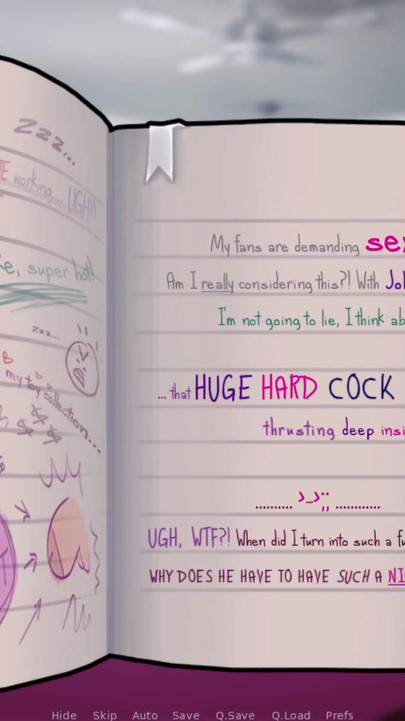 zzz...
E working... UGH!!
ke, super hot!
zzz...
my toy collection...
My fans are demanding sex
Am I really considering this?! With Jo
I'm not going to lie, I think ab
...that HUGE HARD COCK
thrusting deep insi
.......... >_>;; ............
UGH, WTF?! When did I turn into such a fu
WHY DOES HE HAVE TO HAVE SUCH A NI
Hide Skip Auto Save Q.Save Q.Load Prefs